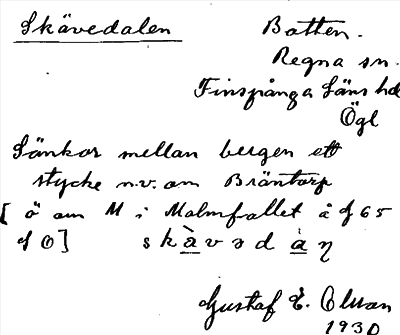 Skävedalen
Botten.
Regna sn.
Finspånga Läns hd
Ögl
Sänkor mellan bergen ett
stycke n.v. om Bräntorp
[ ö om M i Malmfallet å ef 65
ef O ] skàvədàŋ
Gustaf E. Olson
1930